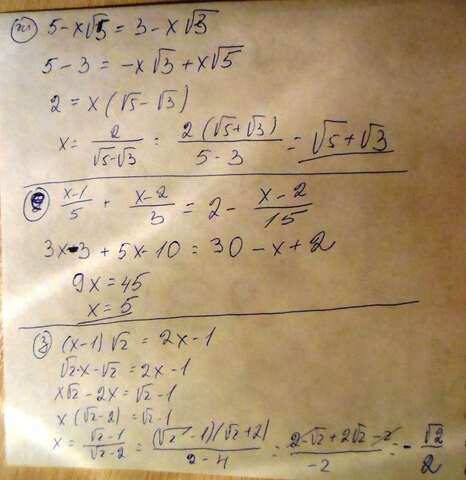 ж) 5 - x√5 = 3 - x√3
5 - 3 = -x√3 + x√5
2 = x(√5 - √3)
x = 2/(√5-√3) = 2(√5+√3)/(5-3) = √5+√3
(x-1)/5 + (x-2)/3 = 2 - (x-2)/15
3x-3 + 5x-10 = 30 - x + 2
9x = 45
x = 5
3) (x-1)√2 = 2x-1
√2·x-√2 = 2x-1
x√2 - 2x = √2 - 1
x(√2-2) = √2-1
x = (√2-1)/(√2-2) = (√2-1)(√2+2)/(2-4) = (2-√2+2√2-2)/(-2) = -√2/2